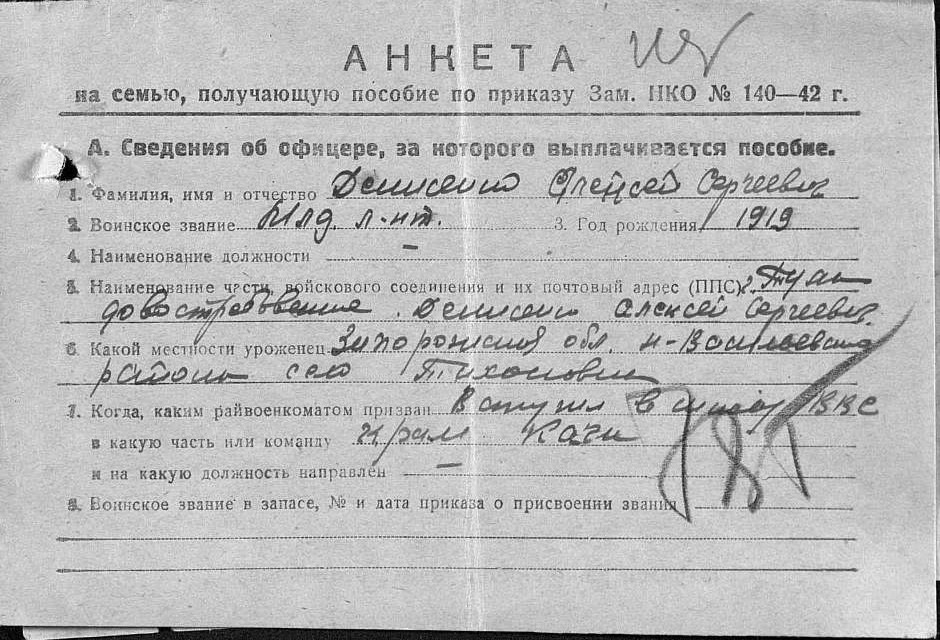 АНКЕТА
на семью, получающую пособие по приказу Зам. НКО № 140—42 г.
А. Сведения об офицере, за которого выплачивается пособие.
1. Фамилия, имя и отчество Денисенко Алексей Сергеевич
2. Воинское звание Млд. л-нт. 3. Год рождения 1919
4. Наименование должности —
5. Наименование части, войскового соединения и их почтовый адрес (ППС) г. Тула
довостребования. Денисенко Алексей Сергеевич.
6. Какой местности уроженец Запорожская обл. н-Васильевского
района село
7. Когда, каким райвоенкоматом призван Вступил в школу ВВС
в какую часть или команду Крым Кача
и на какую должность направлен —
8. Воинское звание в запасе, № и дата приказа о присвоении звания